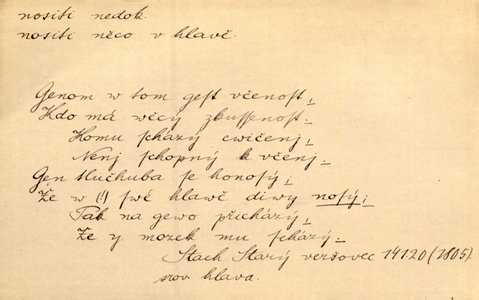 nositi nedok.
nositi něco v hlavě.
Genom w tom gest včenost,
Kdo má wěcy zbussenost.
Komu scházý cwičenj,
Nenj schopný k včenj.
Gen tlučhuba se honosý,
Že w (!) swé hlawě diwy nosý;
Pak na gewo přicházý,
Že y mozek mu scházý.
Stach Starý veršovec 14120 (1805).
srov hlava.